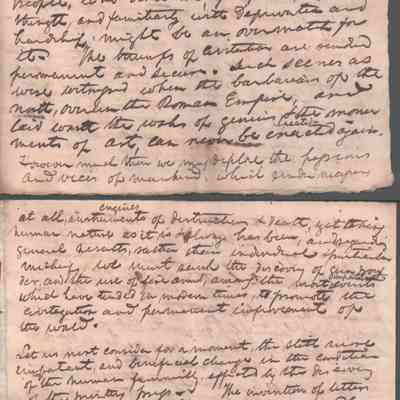 people, who
strength and familiarity with deprivation and
hardship, might be an overmatch for
it. The triumphs of civilization are rendered
permanent and secure. Such scenes as
were witnessed when the barbarians of the
north, overrun the Roman Empire, and
laid waste the works of genius & the monu
ments of art, can never be enacted again.
However much then we may deplore the passions
and vices of mankind, which render weapons
engines
at all, instruments of destruction & death, yet taking
human nature as it is & always has been, and regarding
general results, rather than individual & particular
mischief, we must rank the discovery of gunpow
der, and the use of fire arms, among the events
which have tended in modern times, to promote the
civilization and permanent improvement of
the world.
Let us next consider for a moment, the still more
important and beneficial change in the condition
of the human family, effected by the discovery
of the printing press. The invention of letters